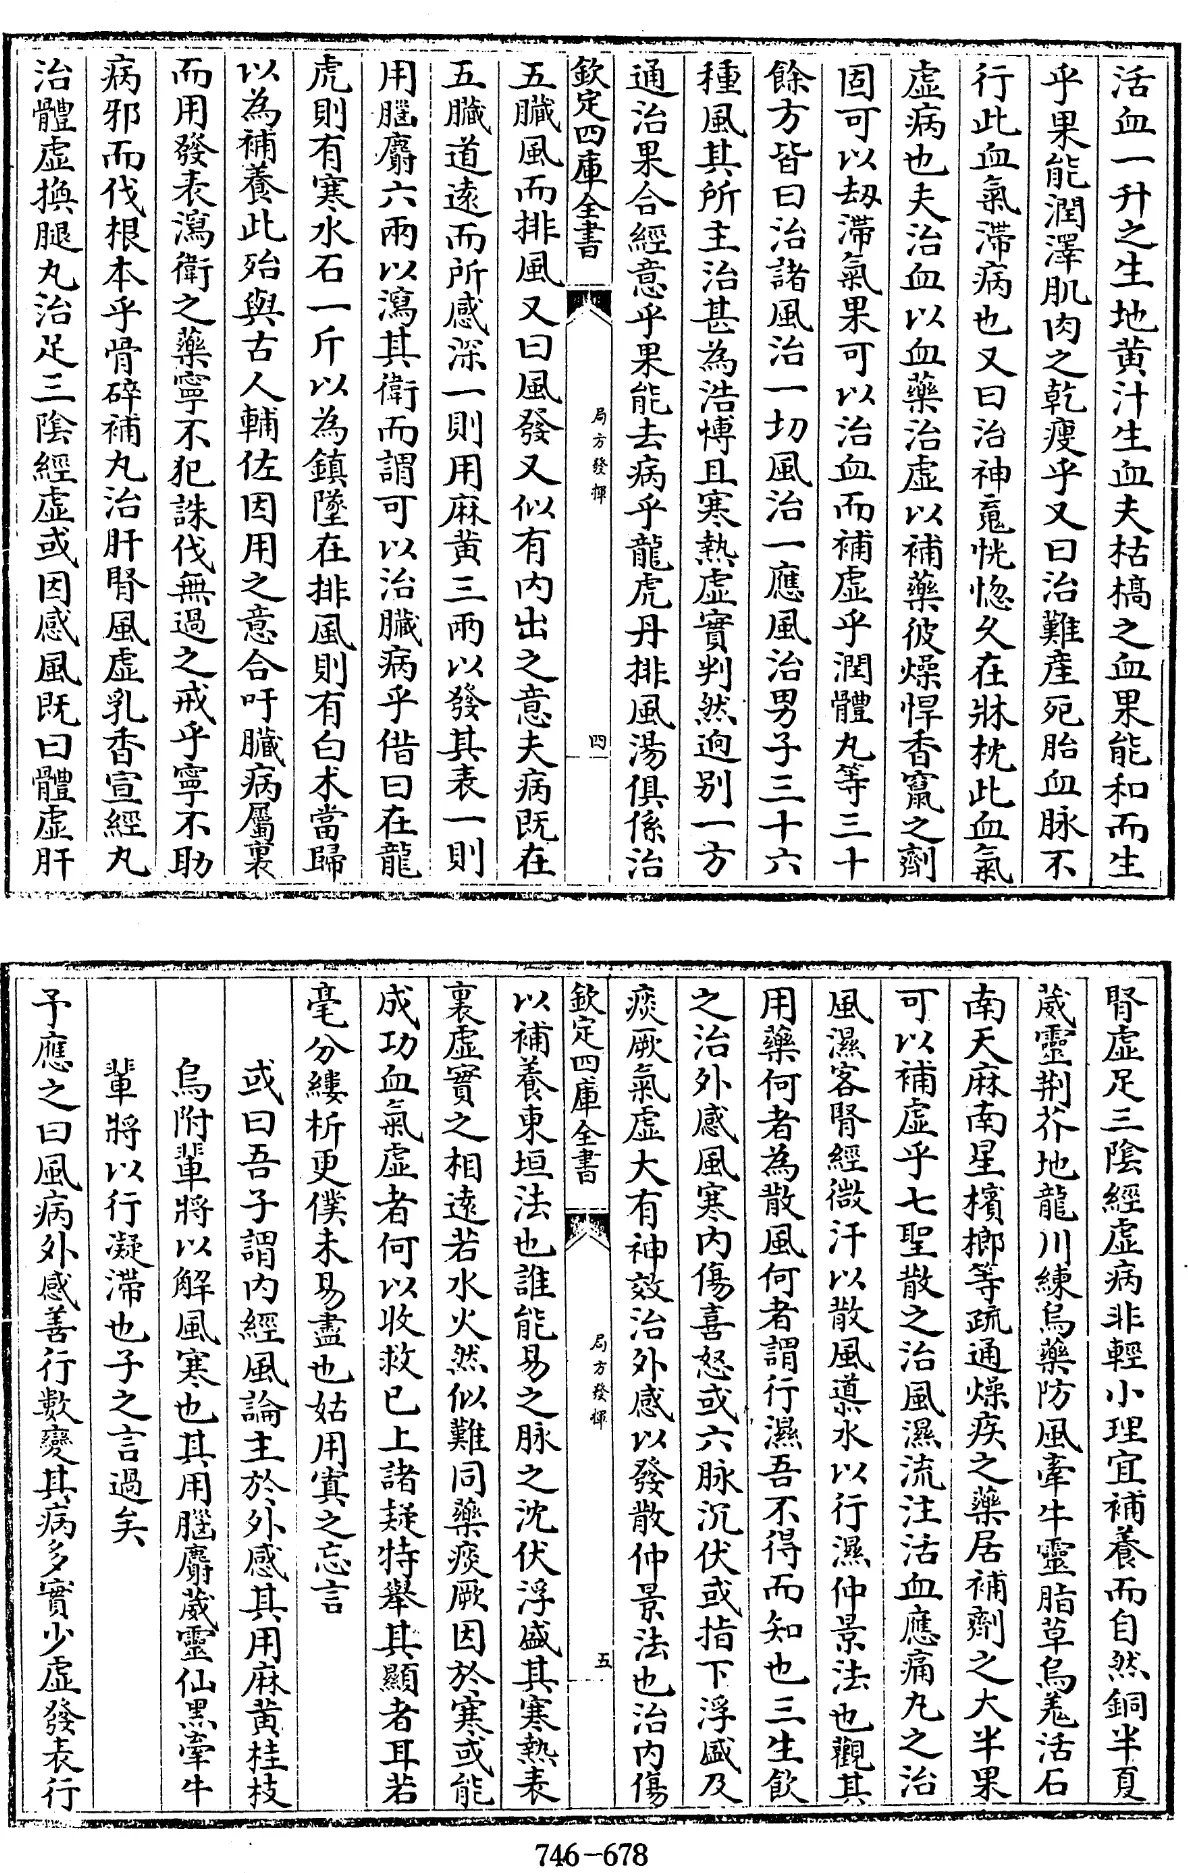 活血一升之生地黄汁生血夫枯槁之血果能和而生
乎果能潤澤肌肉之乾瘦乎又曰治難産死胎血脉不
行此血氣滯病也又曰治神䰟恍惚久在牀枕此血氣
虚病也夫治血以血藥治虚以補藥彼燥悍香竄之劑
固可以刼滯氣果可以治血而補虚乎潤體丸等三十
餘方皆曰治諸風治一切風治一應風治男子三十六
種風其所主治甚為浩博且寒熱虚實判然逈别一方
通治果合經意乎果能去病乎龍虎丹排風湯俱係治
欽定四庫全書
局方發揮
四
五臟風而排風又曰風發又似有内出之意夫病既在
五臟道逺而所感深一則用麻黄三兩以發其表一則
用腦麝六兩以瀉其衛而謂可以治臟病乎借曰在龍
虎則有寒水石一斤以為鎮墜在排風則有白术當歸
以為補養此殆與古人輔佐因用之意合吁臟病屬裏
而用發表瀉衛之藥寧不犯誅伐無過之戒乎寧不助
病邪而伐根本乎骨碎補丸治肝腎風虚乳香宣經丸
治體虚換腿丸治足三隂經虚或因感風既曰體虚肝
腎虚足三隂經虚病非輕小理宜補養而自然銅半夏
葳靈荆芥地龍川練烏藥防風牽牛靈脂草烏羗活石
南天麻南星檳榔等疏通燥疾之藥居補劑之大半果
可以補虚乎七聖散之治風濕流注活血應痛丸之治
風濕客腎經微汗以散風導水以行濕仲景法也觀其
用藥何者為散風何者謂行濕吾不得而知也三生飲
之治外感風寒内傷喜怒或六脉沉伏或指下浮盛及
痰厥氣虚大有神效治外感以發散仲景法也治内傷
欽定四庫全書
局方發揮
五
以補養東垣法也誰能易之脉之沈伏浮盛其寒熱表
裏虚實之相逺若水火然似難同藥痰厥因於寒或能
成功血氣虚者何以收救已上諸疑特舉其顯者耳若
毫分縷析更僕未易盡也姑用寘之忘言
或曰吾子謂内經風論主於外感其用麻黄桂枝
烏附輩將以解風寒也其用腦麝葳靈仙黑牽牛
輩將以行凝滯也子之言過矣
予應之曰風病外感善行數變其病多實少虚發表行
746-678